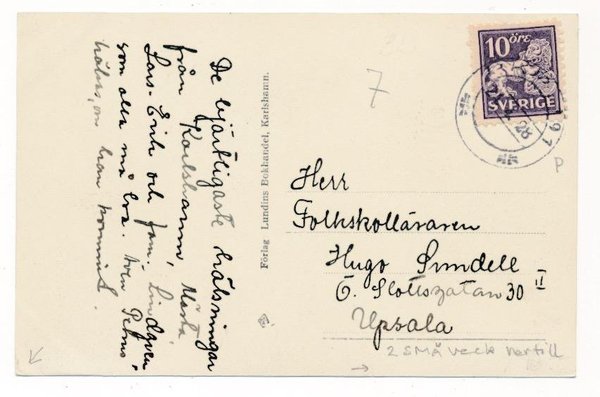 De hjärtligaste hälsningar
från Karlshamn,
Lars-Erik och fam. Lindgren,
som alla må bra. Även
hälsn. om han kommit.
Förlag Lundins Bokhandel, Karlshamn.
7
10 ÖRE
SVERIGE
Herr
Folkskolläraren
Hugo Sundell
Ö. Slottsgatan 30 II
Upsala
2 små veck nertill
P